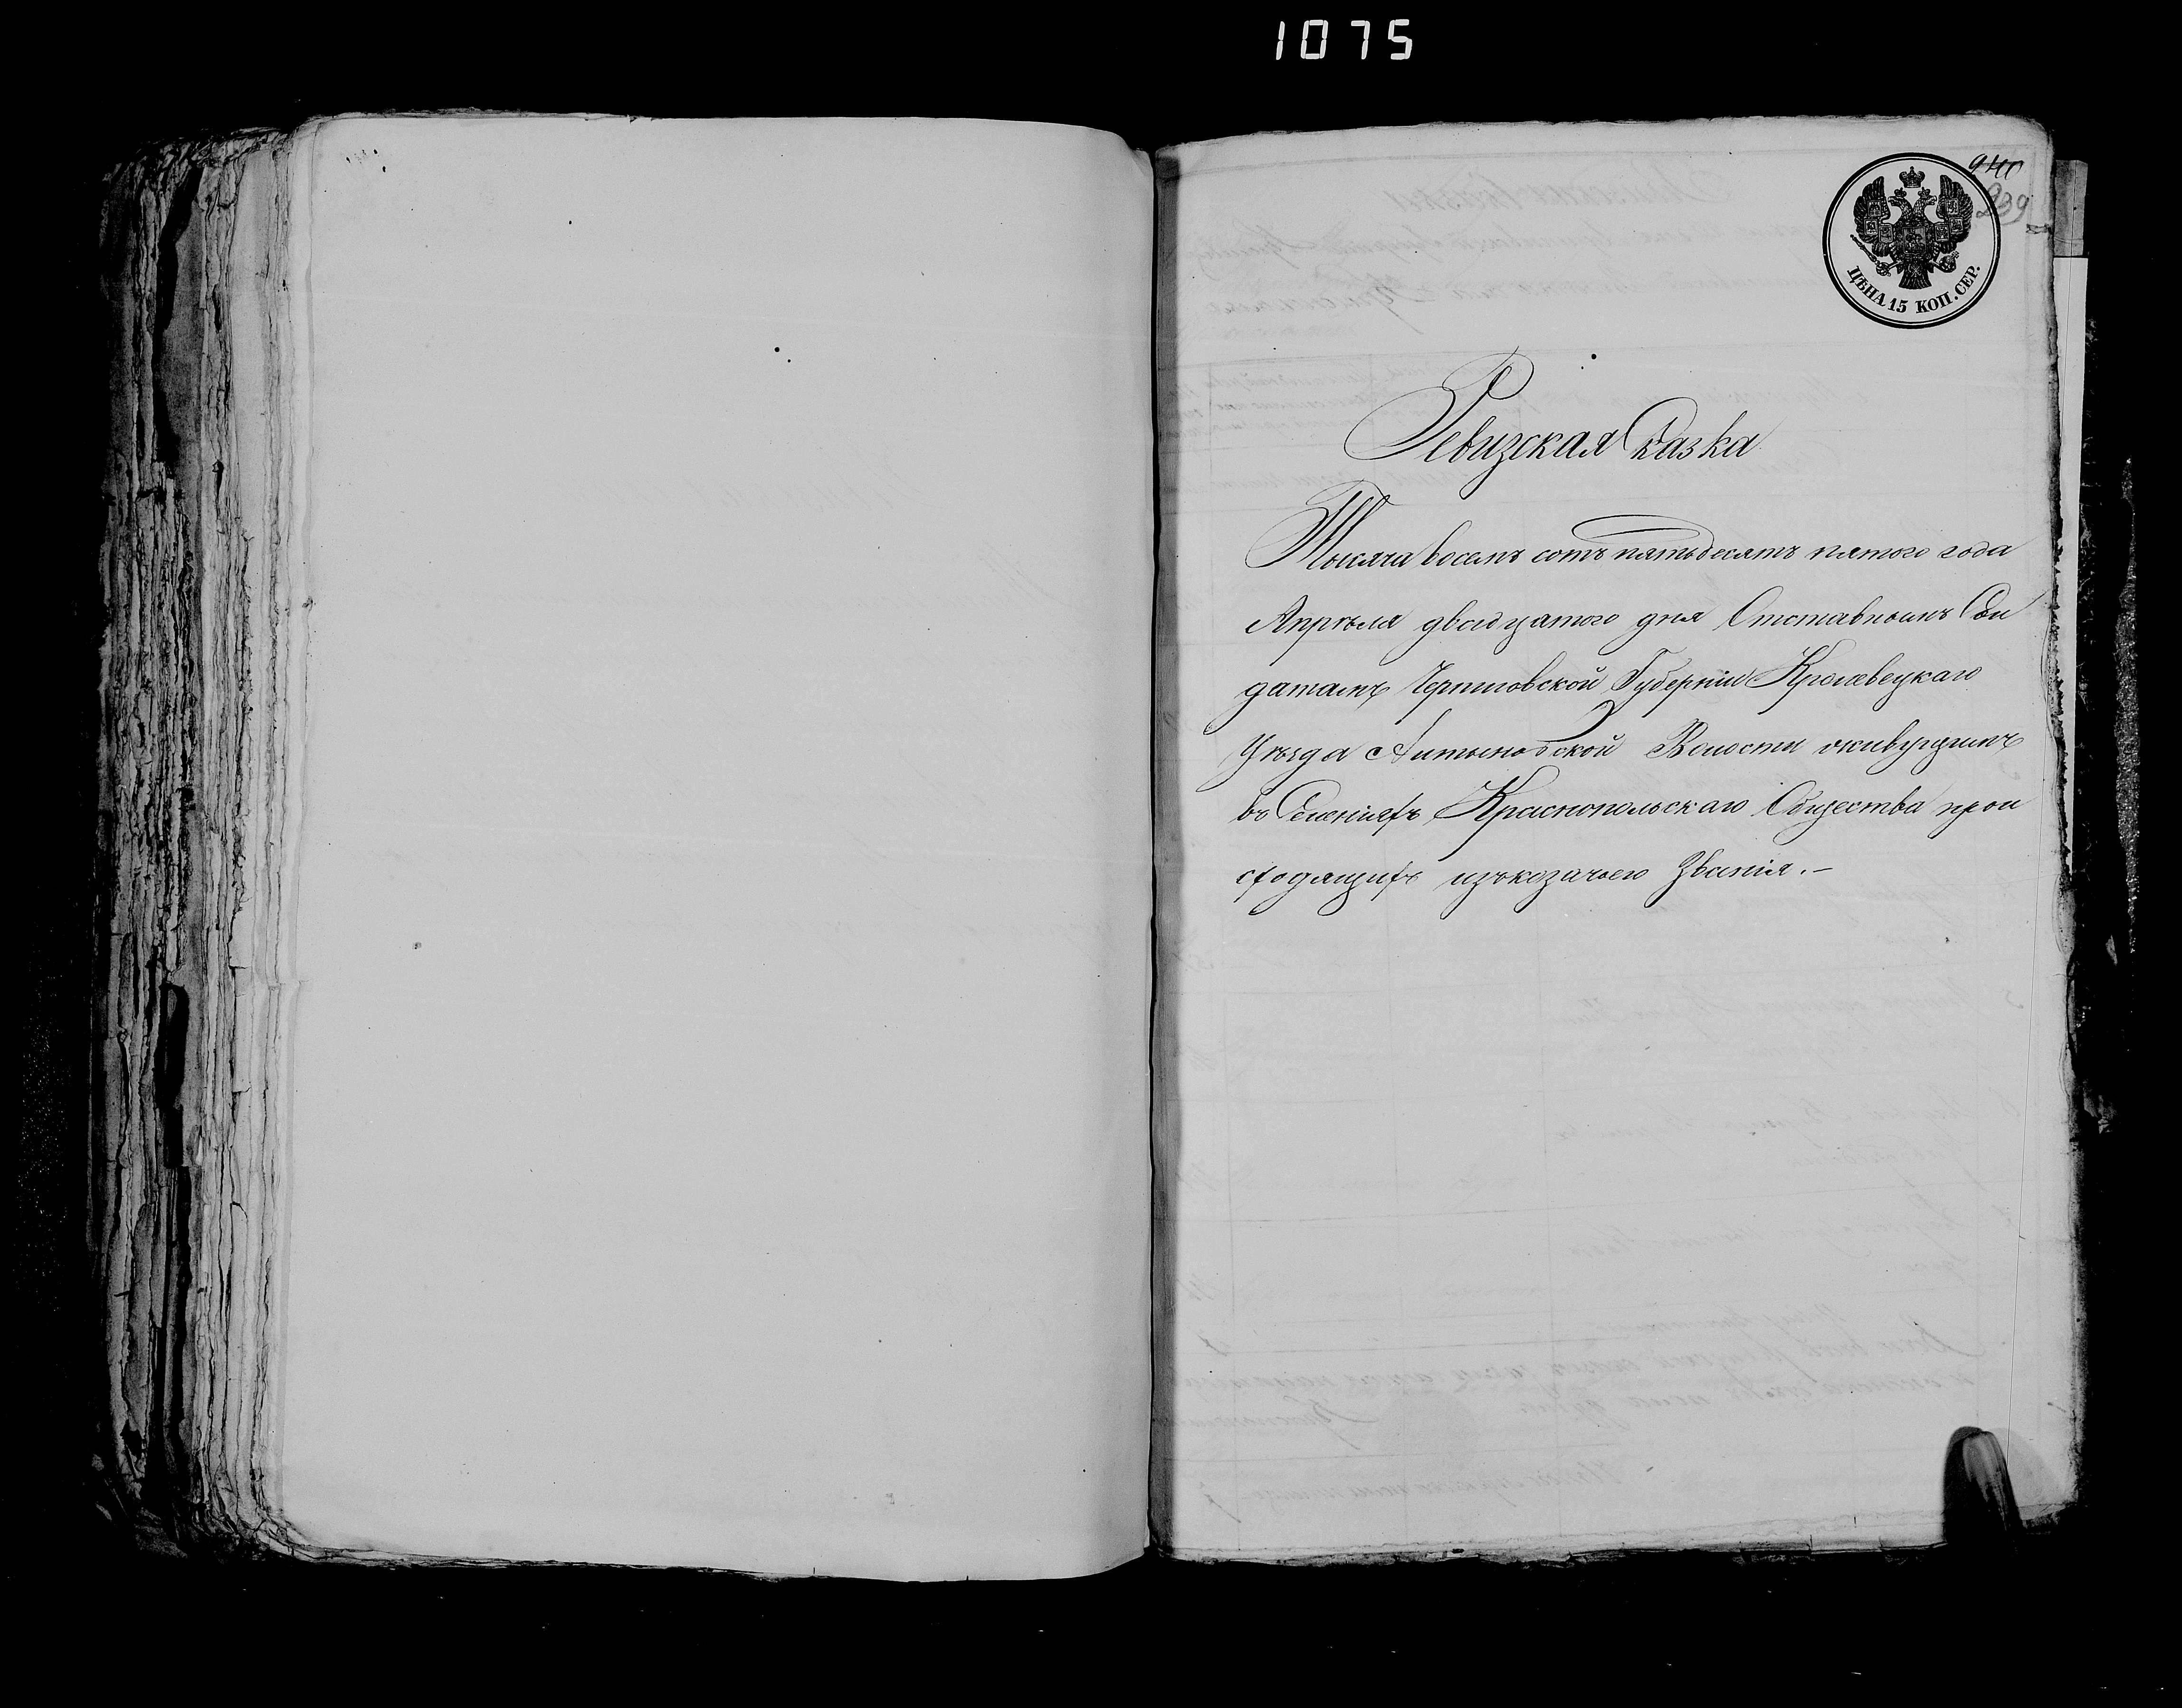 1075
940
939
ЦѢНА 15 КОП. СЕР.
Ревизская Сказка
Тысяча восемь сотъ пятьдесятъ пятого года
Апрѣля двадцатого дня Отставнымъ Сол
датамъ Черниговской Губерніи Кролевецкаго
Уѣзда Алтыновской Волости живущимъ
въ Селеніяхъ Краснопольскаго Общества прои
сходящихъ изъ козачьего Званія.-